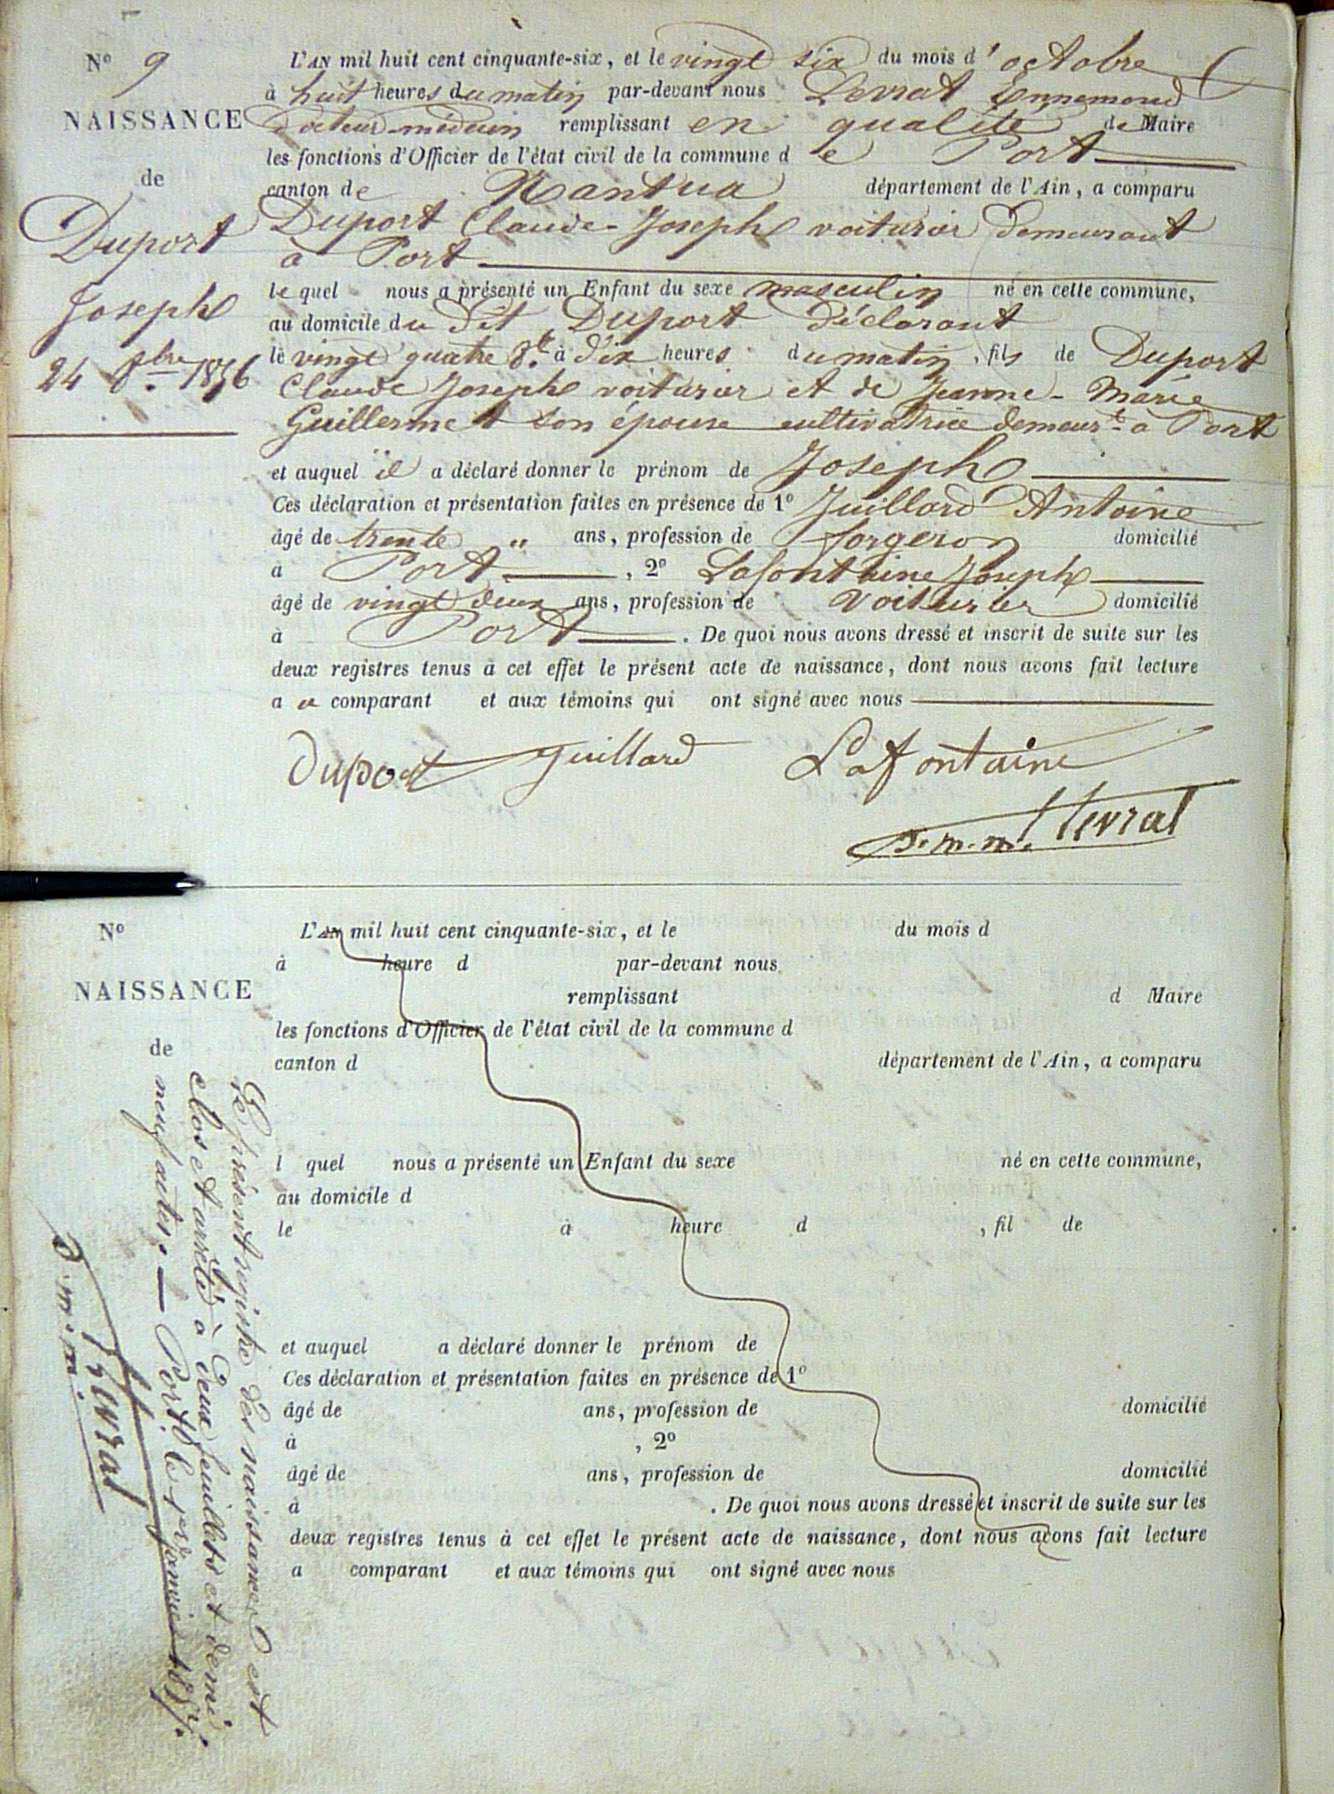 N° 9
NAISSANCE
de
Duport
Joseph
24 8bre 1856
L'AN mil huit cent cinquante-six, et le vingt six du mois d'octobre
à huit heures du matin par-devant nous Levrat Ennemond
docteur-médecin remplissant en qualité de Maire
les fonctions d'Officier de l'état civil de la commune de Port
canton de Nantua département de l'Ain, a comparu
Duport Claude-Joseph voiturier demeurant
à Port
lequel nous a présenté un Enfant du sexe masculin né en cette commune,
au domicile du dit Duport déclarant
le vingt quatre 8bre à dix heures du matin, fils de Duport
Claude Joseph voiturier et de Jeanne-Marie
Guillermet son épouse cultivatrice demeurt à Port
et auquel il a déclaré donner le prénom de Joseph
Ces déclaration et présentation faites en présence de 1° Juillard Antoine
âgé de trente " ans, profession de forgeron domicilié
à Port, 2° Lafontaine Joseph
âgé de vingt deux ans, profession de voiturier domicilié
à Port. De quoi nous avons dressé et inscrit de suite sur les
deux registres tenus à cet effet le présent acte de naissance, dont nous avons fait lecture
au comparant et aux témoins qui ont signé avec nous
Duport Juillard Lafontaine
D.m.m. Levrat
N°
NAISSANCE
de
L'AN mil huit cent cinquante-six, et le du mois d
à heure d par-devant nous
remplissant d Maire
les fonctions d'Officier de l'état civil de la commune d
canton d département de l'Ain, a comparu
l quel nous a présenté un Enfant du sexe né en cette commune,
au domicile d
le à heure d , fil de
et auquel a déclaré donner le prénom de
Ces déclaration et présentation faites en présence de 1°
âgé de ans, profession de domicilié
à , 2°
âgé de ans, profession de domicilié
à . De quoi nous avons dressé et inscrit de suite sur les
deux registres tenus à cet effet le présent acte de naissance, dont nous avons fait lecture
a comparant et aux témoins qui ont signé avec nous
Le présent registre des naissances est
clos et arrêté à deux feuillets et demi
neuf actes. — Port le 1er janvier 1857.
D.m.m. Levrat